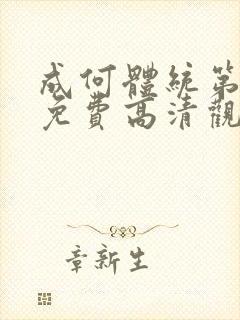 成何體統第
免費高清觀
章新生